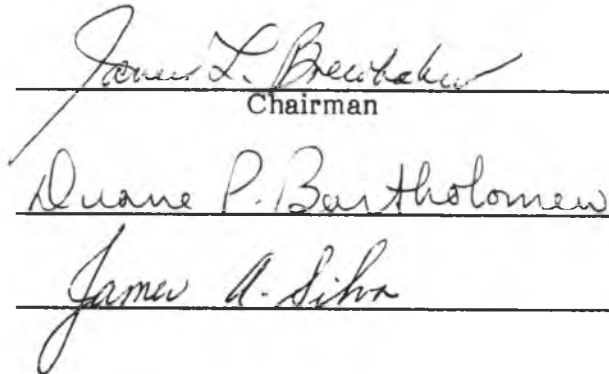 James L. Brewbaker
Chairman
Duane P. Bartholomew
James A. Silva